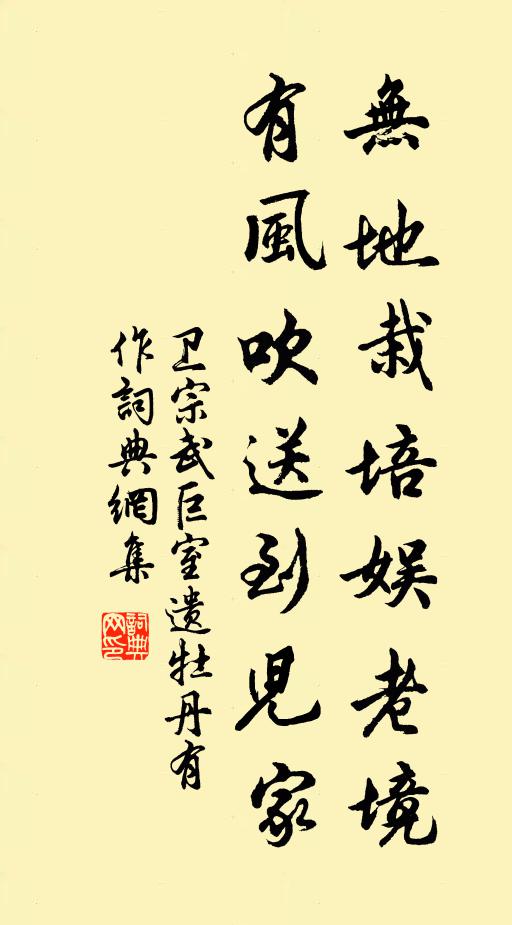 無地栽培娱老境
有風吹送到児家
卫宗武巨室遗牡丹有
作詞典網集
詞典
网印